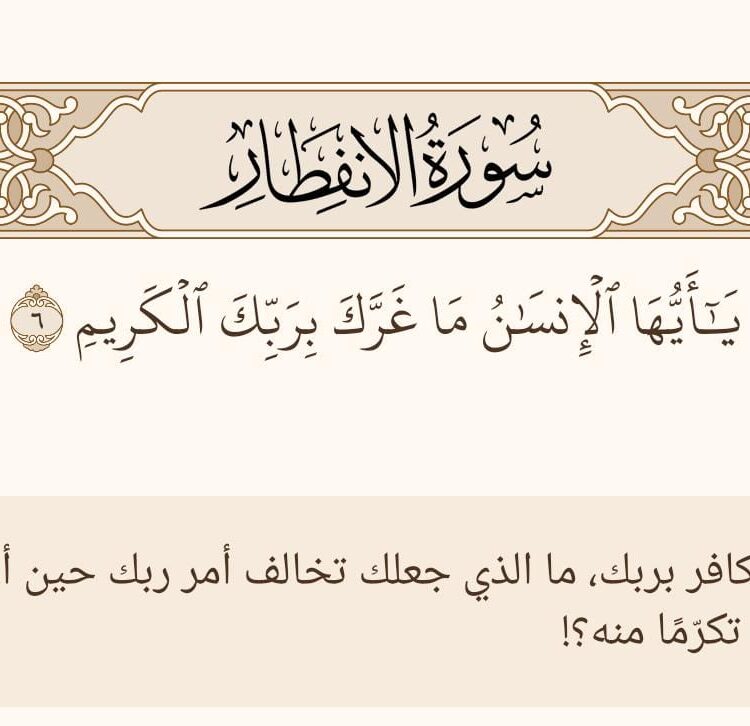 سُورَةُ الانفِطَارِ
يَـٰٓأَيُّهَا ٱلْإِنسَـٰنُ مَا غَرَّكَ بِرَبِّكَ ٱلْكَرِيمِ ٦
كافر بربك، ما الذي جعلك تخالف أمر ربك حين أ
تكرّمًا منه؟!